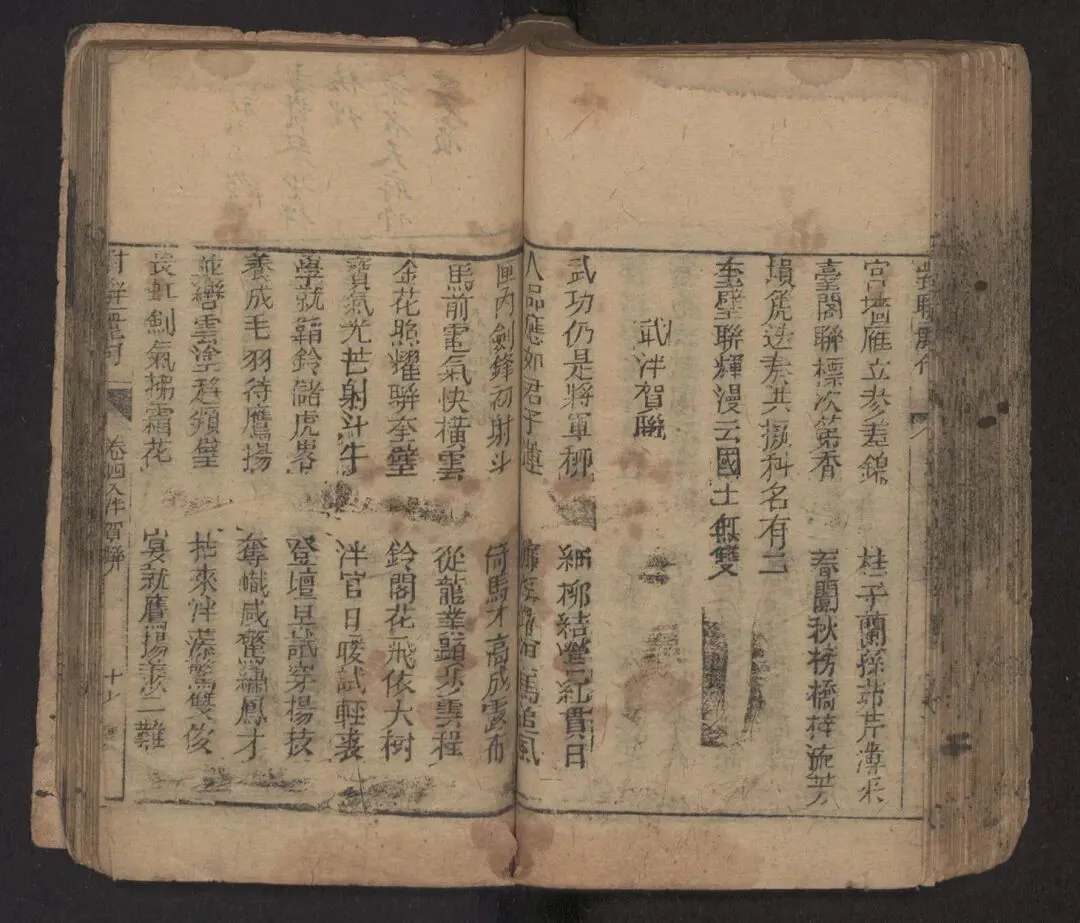 宮墻雁立參差錦
桂子蘭孫茆芹薄采
臺閣聯標次第香
春蘭秋榜橋梓流芳
塤箎迭奏共掇科名有二
奎璧聯輝漫云國士無雙
武泮賀聯
武功仍是將軍柳
細柳結營紅貫日
人品應如君子蓮
馬追風
匣內劍鋒初射斗
倚馬才高成露布
馬前電氣快橫雲
從龍業顯步雲程
金花照耀聯奎璧
鈴閣花飛依大樹
寶氣光芒射斗牛
泮官日暖試輕裘
學就韜鈴儲虎畧
登壇早試穿揚技
養成毛羽待鷹揚
奪幟咸驚綉鳳才
並轡雲塗趍頻璧
拈來泮藻驚雙俊
長虹劍氣拂霜花
宴就鷹揚羨二難
卷四入泮賀聯